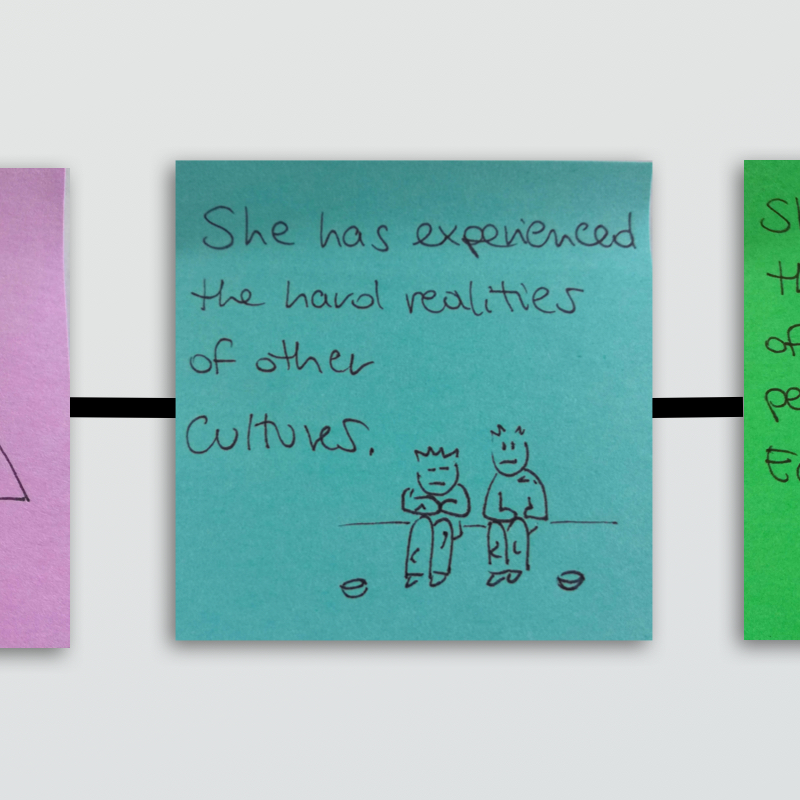 She has experienced
the hard realities
of other
Cultures.
of